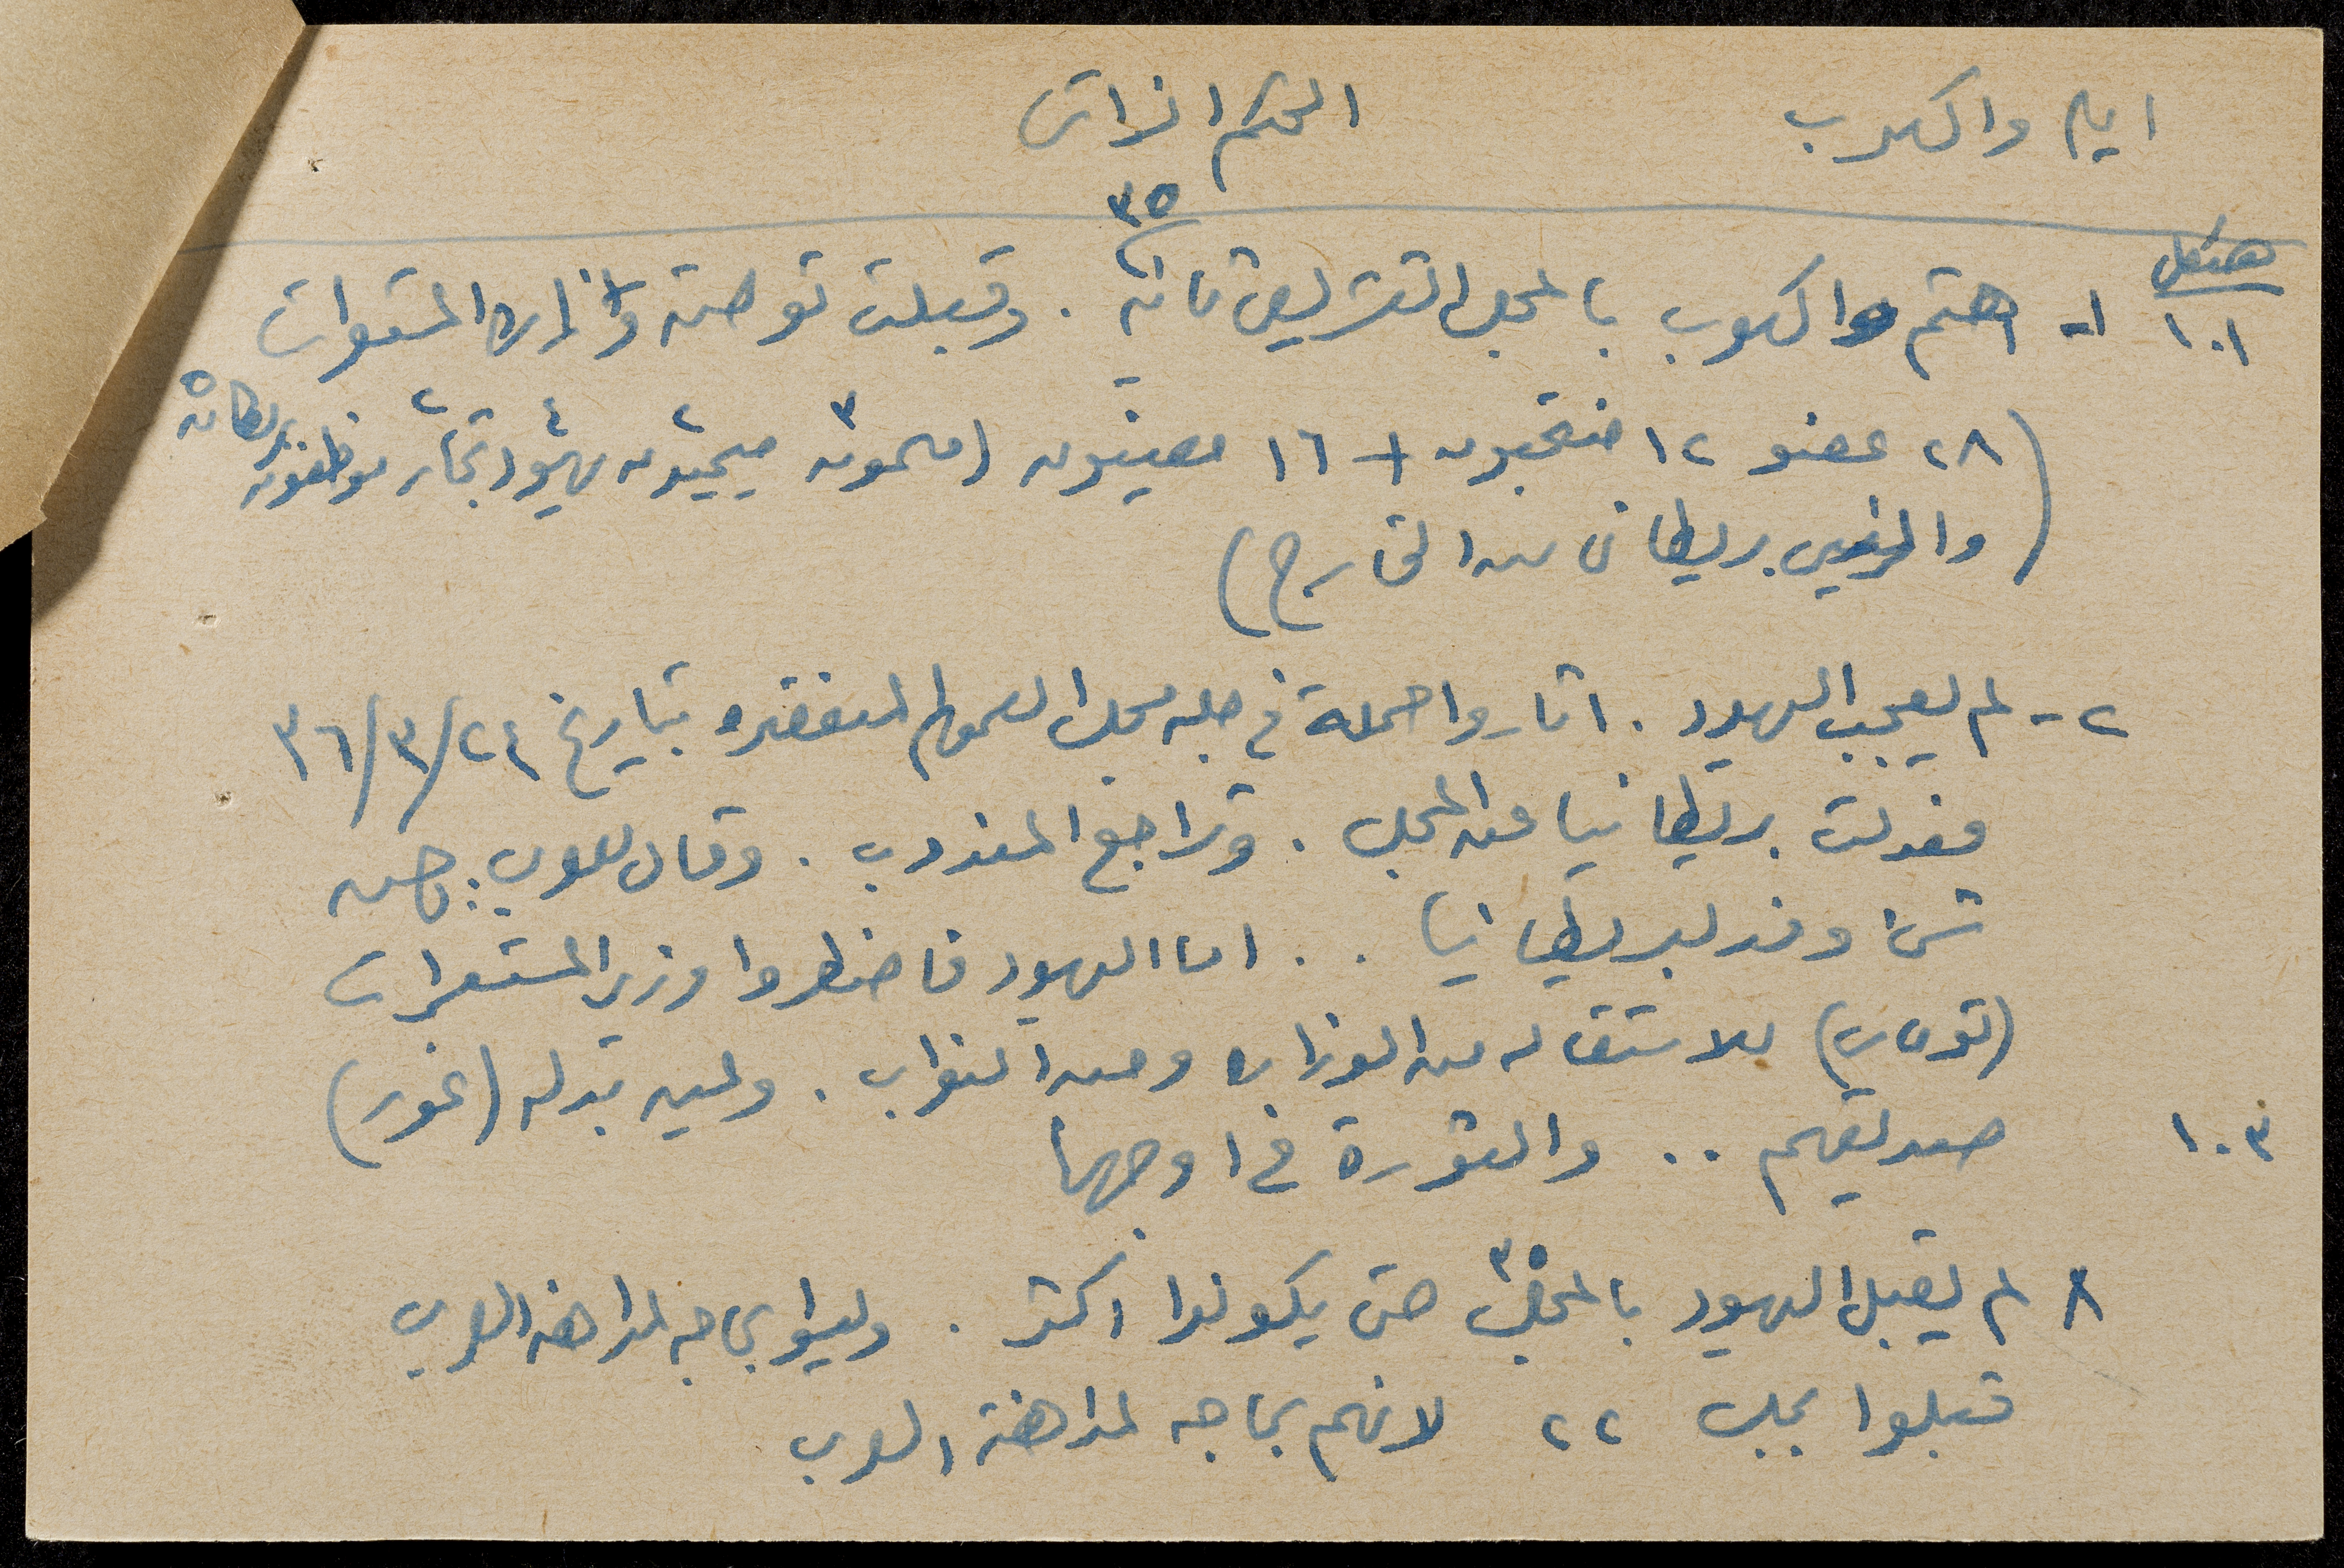 ايام واكهوب
الحكم الذاتي
٣٥
هيكل
١٠١
١- اهتم واكهوب بالمجلس التشريعي ثانية . وقبلت توصيته وزارة المستعمرات
(٢٨ عضو ١٢ منتخبون + ١٦ معينون (مسلمون ٣ مسيحيون ٢ يهود ٤ تجار ٢ موظفون بريطانيه ٥
والرئيس بريطاني من الخارج)
٢- لم يعجب اليهود . اثاروا حملة في جلسه مجلس العموم المنعقده بتاريخ ٢٤/٣/٣٦
فعدلت بريطانيا عن المجلس . وتراجع المندوب . وقال للعرب :
وفد لبريطانيا . . اما اليهود فاضطروا وزير المستعمرات
(توماس) للاستقاله من الوزاره ومن النواب . وعين بدله (غور)
١٠٣
صديقهم . . والثورة في اوجها
٨ لم يقبل اليهود بالمجلس ٣٥ حتى يكونوا اكثر . وليسوا بحاجه لمداهنه العرب
قبلوا بمجلس ٢٢ لانهم بحاجه لمداهنة العرب